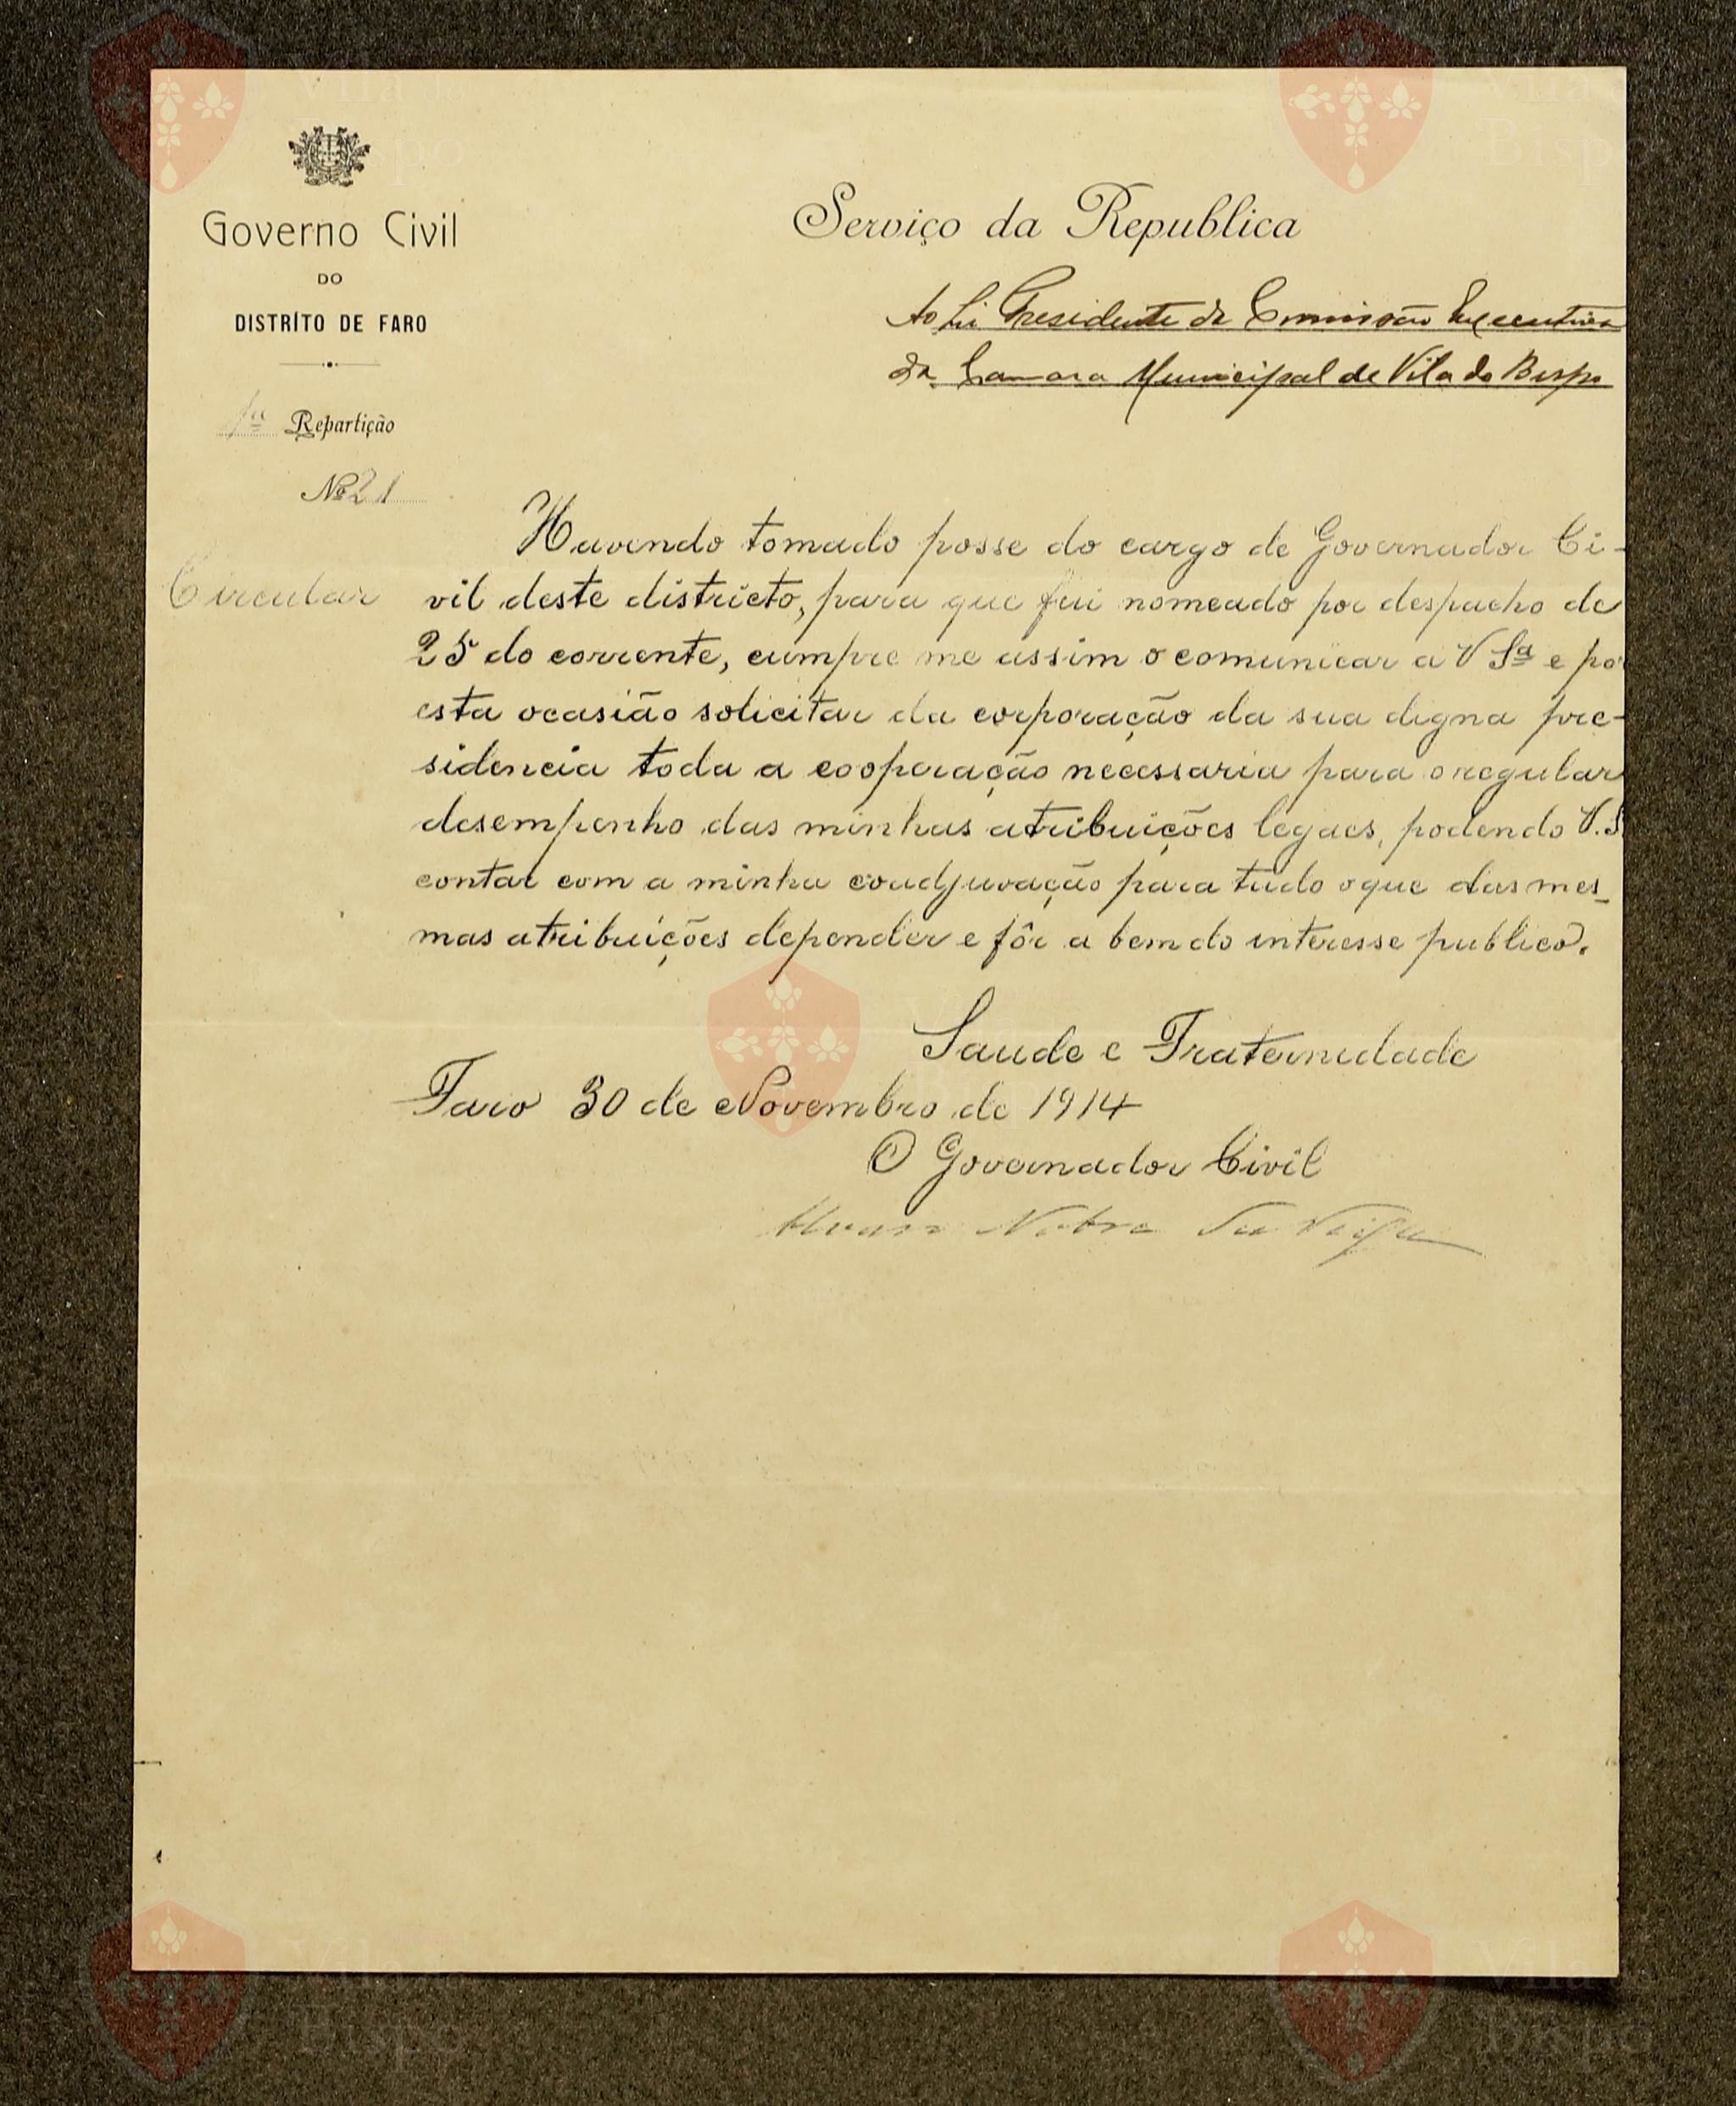 Governo Civil
DO
DISTRÍTO DE FARO
1ª Repartição
Nº 21
Circular
Serviço da Republica
Ao Sr Presidente da Comissão Executiva
da Camara Municipal de Vila do Bispo
Havendo tomado posse do cargo de Governador Ci-
vil deste districto, para que fui nomeado por despacho de
25 do corrente, cumpre me assim o comunicar a V Sª e por
esta ocasião solicitar da corporação da sua digna pre-
sidencia toda a cooperação necessaria para o regular
desempenho das minhas atribuições legaes, podendo V. S
contar com a minha coadjuvação para tudo o que das mes-
mas atribuições depender e fôr a bem do interesse publico.
Saude e Fraternidade
Faro 30 de Novembro de 1914
O Governador Civil
Nobre da Veiga
Vila do
Bispo